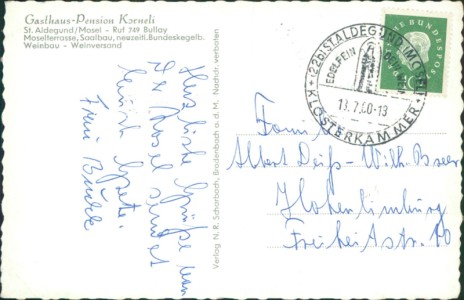 Gasthaus-Pension Korneli
St. Aldegund/Mosel - Ruf 749 Bullay
Moselterrasse, Saalbau, neezeitl. Bundeskegelb.
Weinbau - Weinversand
Herzliche Grüße von
der Mosel sendet
Frau
Verlag N. R. Schorbach, Brodenbach a. d. M. Nachdr. verboten
(22b) ST. ALDEGUND (MOSEL)
EDELFEIN
13.7.60-13
KLOSTERKAMMER
DEUTSCHE BUNDESPOST
Familie
Albert Deiß - Wilh.
Hohenlimburg
Freiheitstr.